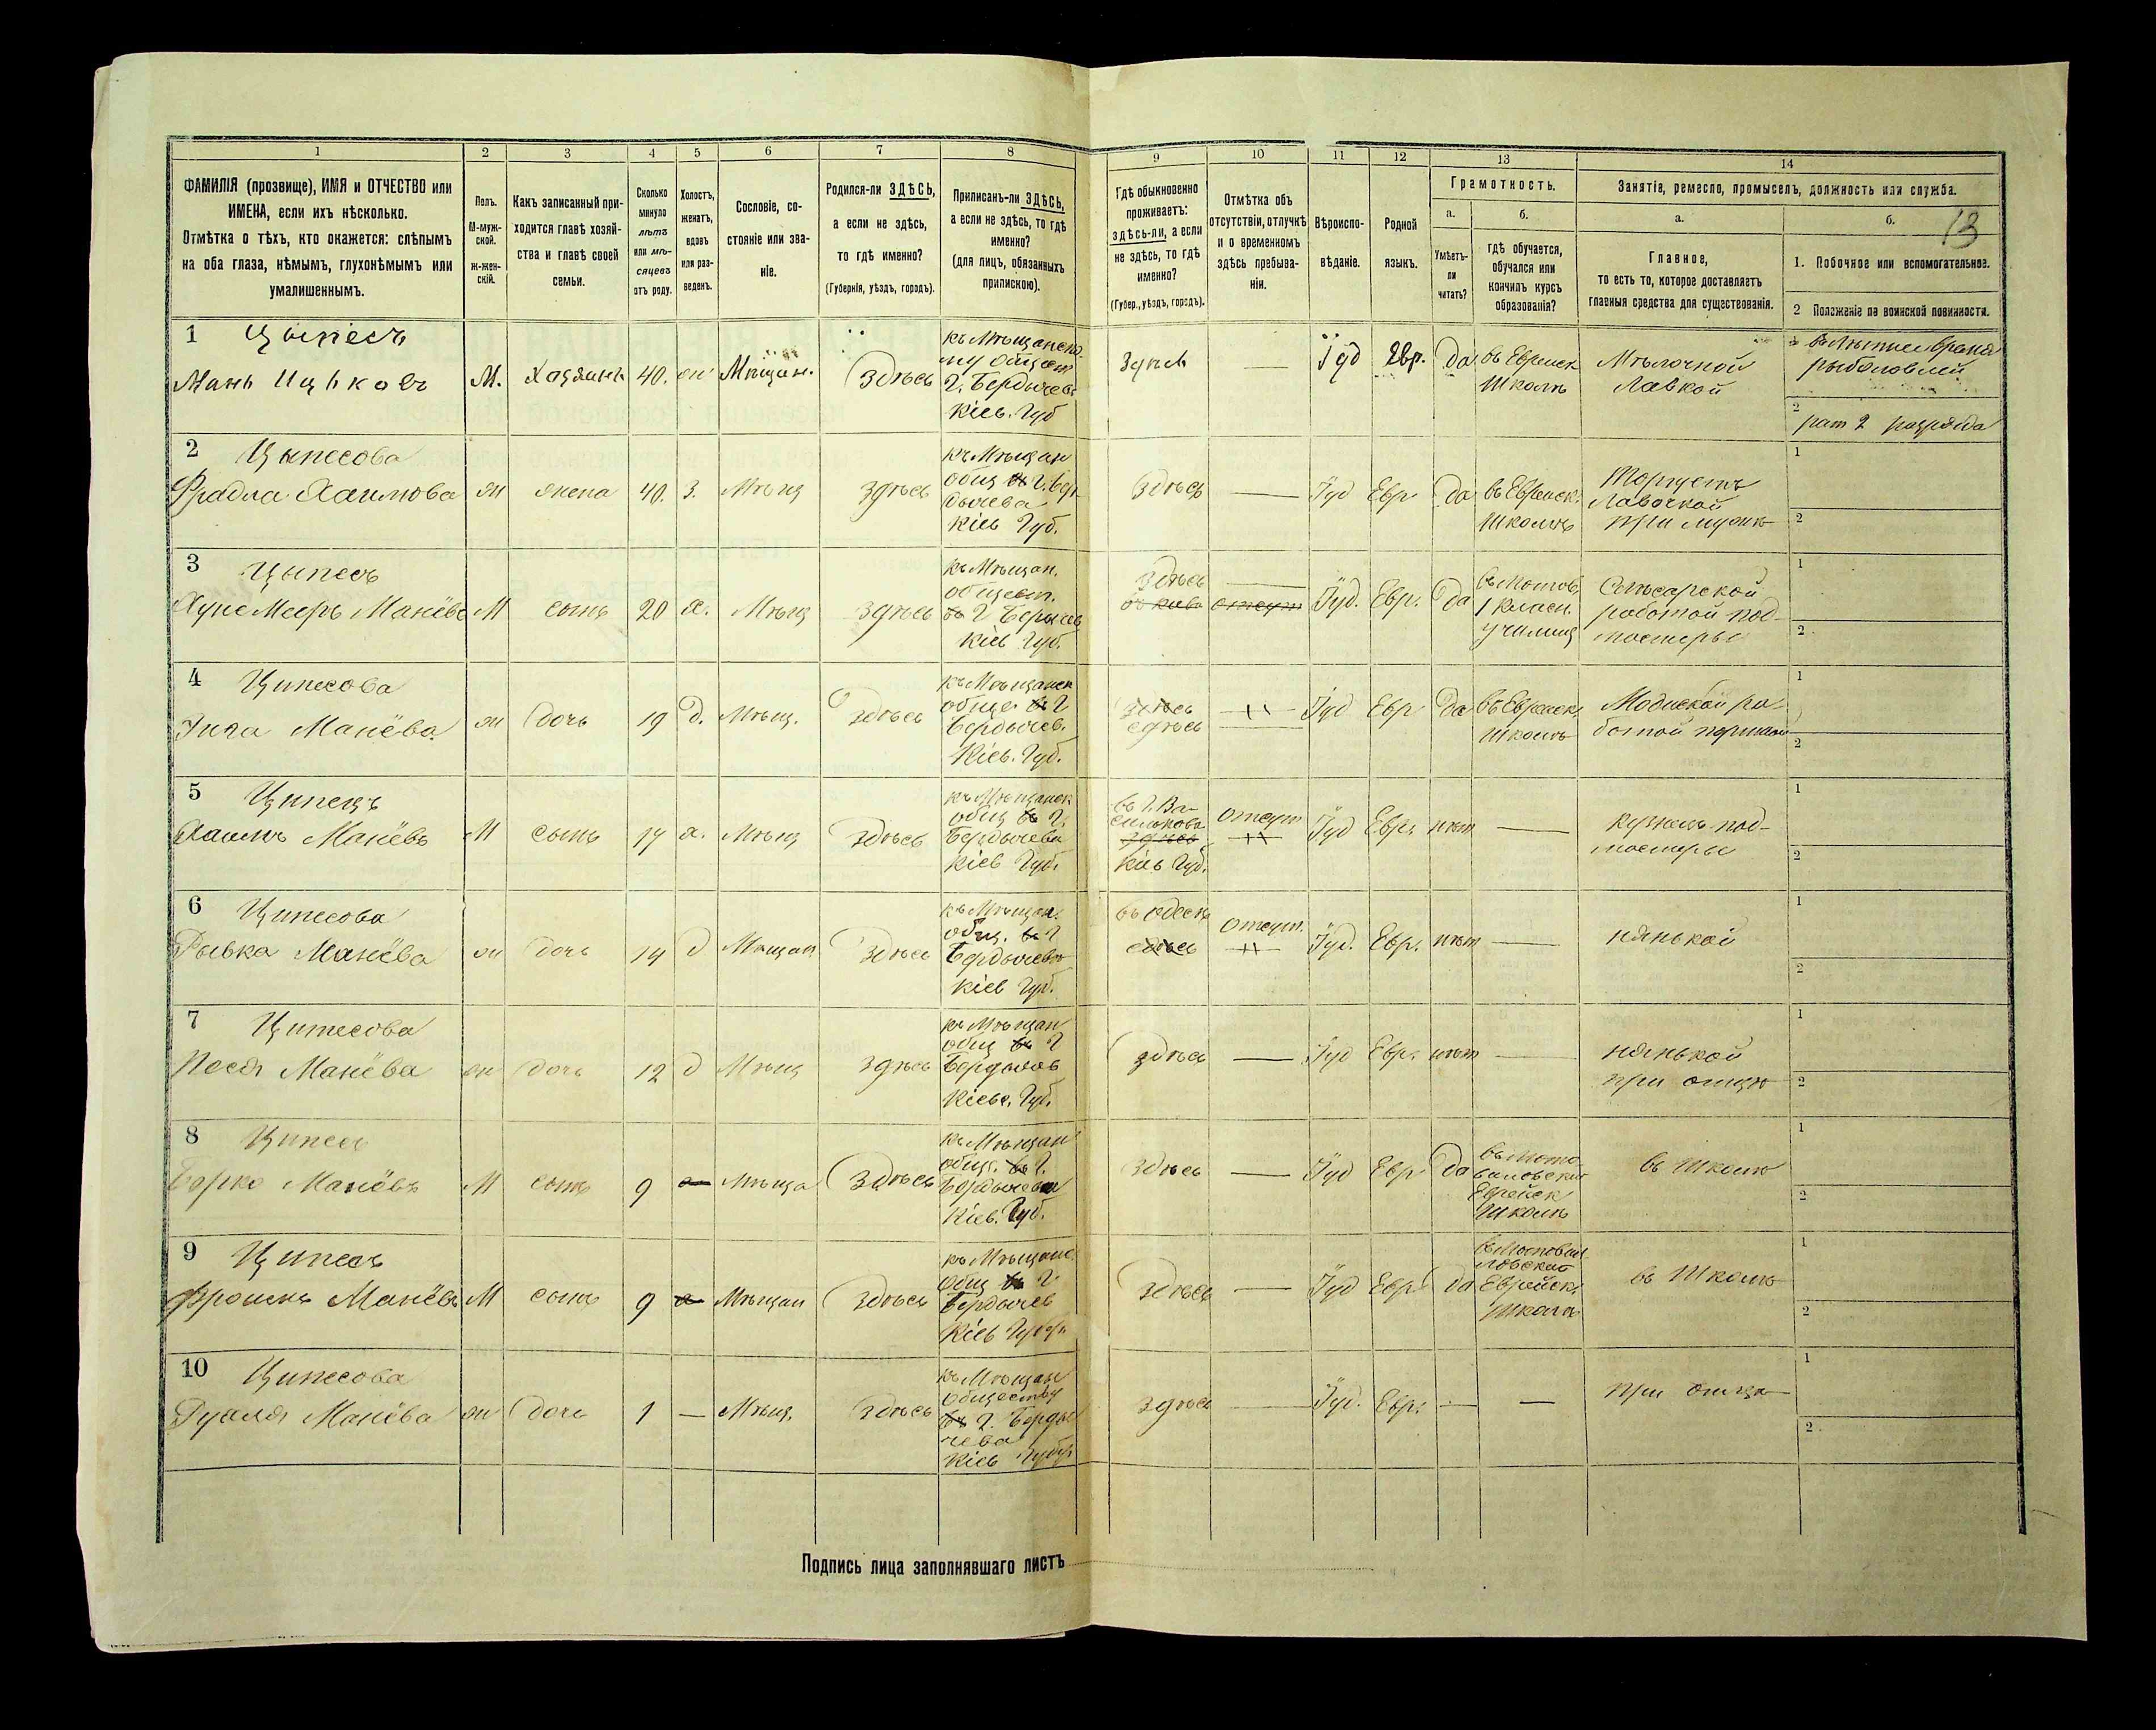 1 2 3 4 5 6 7 8 9 10 11 12 13 14
13
ФАМИЛІЯ (прозвище), ИМЯ и ОТЧЕСТВО или
ИМЕНА, если ихъ нѣсколько.
Отмѣтка о тѣхъ, кто окажется: слѣпымъ
на оба глаза, нѣмымъ, глухонѣмымъ или
умалишеннымъ.
Полъ.
М-муж-
ской.
ж-жен-
скій.
Какъ записанный при-
ходится главѣ хозяй-
ства и главѣ своей
семьи.
Сколько
минуло
лѣтъ
или мѣ-
сяцевъ
отъ роду.
Холостъ,
женатъ,
вдовъ
или раз-
веденъ.
Сословіе, со-
стояніе или зва-
ніе.
Родился-ли ЗДѢСЬ,
а если не здѣсь,
то гдѣ именно?
(Губернія, уѣздъ, городъ).
Приписанъ-ли ЗДѢСЬ,
а если не здѣсь, то гдѣ
именно?
(для лицъ, обязанныхъ
припискою).
Гдѣ обыкновенно
проживаетъ:
здѣсь-ли, а если
не здѣсь, то гдѣ
именно?
(Губер., уѣздъ, городъ).
Отмѣтка объ
отсутствіи, отлучкѣ
и о временномъ
здѣсь пребыва-
ніи.
Вѣроиспо-
вѣданіе.
Родной
языкъ.
Грамотность.
а.
Умѣетъ-
ли
читать?
б.
гдѣ обучается,
обучался или
кончилъ курсъ
образованія?
Занятіе, ремесло, промыселъ, должность или служба.
а.
Главное,
то есть то, которое доставляетъ
главныя средства для существованія.
б.
1. Побочное или вспомогательное.
2 Положеніе по воинской повинности.
1 Цыпесъ
Мань Ицьковъ М. Хозяинъ 40. Мѣщан. Здѣсь
къ Мѣщанско-
му общест
г. Бердичев
Кіев. Губ
Здѣсь — Іуд Евр. Да
въ Еврейск
Школѣ
Мѣлочной
Лавкой
рыболовлей
2
рат 2 разряда
2 Цыпесова
Фрадла Хаимова ж жена 40. З. Мѣщ здѣсь
къ Мѣщан
общ въ г. Бер-
дичева
Кіев Губ.
Здѣсь — Іуд Евр да
въ Еврейск.
Школѣ
Торгуетъ
Лавочкой
при мужѣ
1
2
3 Цыпесъ
Мееръ Манёвъ М сынъ 20 х. Мѣщ здѣсь
къ Мѣщан.
общест.
въ г Бердичев
Кіев Губ.
Здѣсь —
отсут
Іуд. Евр. да
1 класн.
училищ
Слѣсарской
работой под-
мостерье
1
2
4 Ципесова
Манёва ж дочь 19 д. Мѣщ. здѣсь
къ Мѣщанск
общ. въ г
Бердичев.
Кіев. Губ.
здѣсь
Іуд Евр да
въ Еврейск.
школѣ
1
2
5 Ципесъ
Хаимъ Манёвъ М сынъ 17 х. Мѣщ здѣсь
къ Мѣщанск
общ въ г.
Бердичева
Кіев Губ.
въ г. Ва-
силькова
здѣсь
Кіев Губ.
отсут
Іуд Евр. нѣт —
кузнец под-
мостерье
1
2
6 Ципесова
Рывка Манёва ж дочь 14 д Мѣщан здѣсь
къ Мѣщан.
общ. въ г
Бердичев
Кіев Губ.
въ Одесѣ
здѣсь
отсут.
Іуд. Евр. нѣт —
нянькой
1
2
7 Ципесова
Песя Манёва ж дочь 12 д Мѣщ здѣсь
къ Мѣщан
общ въ г
Бердичев
Кіевс. Губ.
здѣсь — Іуд Евр. нѣт —
нянькой
при отцѣ
1
2
8 Ципесъ
Борко Манёвъ М сынъ 9 Мѣща здѣсь
къ Мѣщан
общ. въ г.
Бердичева
Кіев. Губ.
Здѣсь — Іуд Евр да
въ Мото-
виловской
Еврейск
Школѣ
въ Школѣ
1
2
9 Ципесъ
Фроимъ Манёвъ М сынъ 9 Мѣщан здѣсь
къ Мѣщанс.
общ въ г.
Бердичев
Кіев Губер
Здѣсь — Іуд Евр да
въ Мотови-
ловской
Еврейск.
Школѣ
въ Школѣ
1
2
10 Ципесова
Манёва ж дочь 1 — Мѣщ. здѣсь
къ Мѣщан
обществу
въ г. Берди
чева
Кіев Губер
здѣсь — Іуд. Евр. — —
при отца
1
2
Подпись лица заполнявшаго листъ